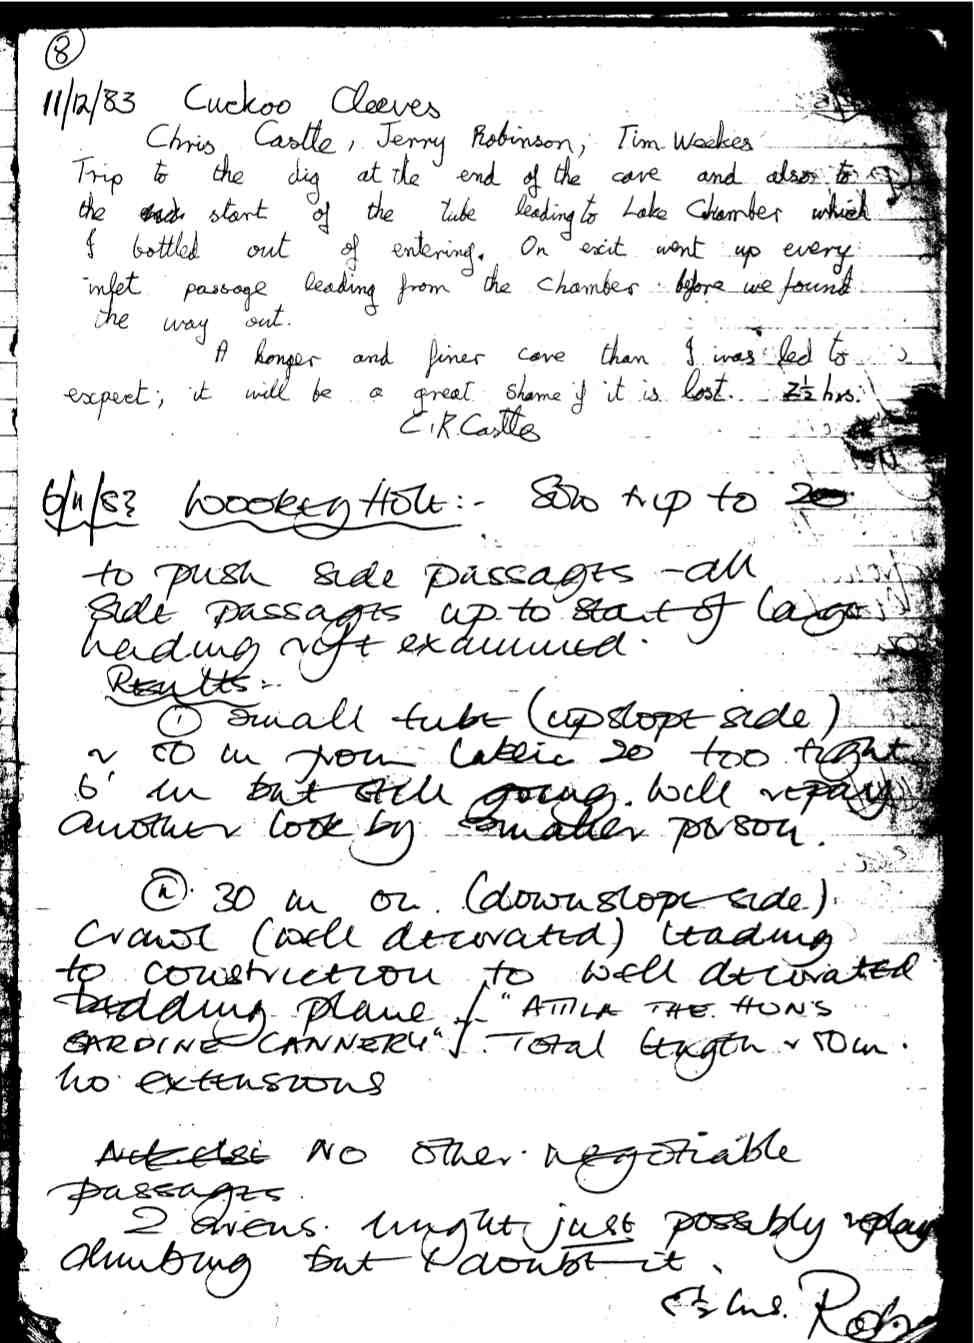 8
11/12/83 Cuckoo Cleeves
Chris Castle, Jerry Robinson, Tim Weekes
Trip to the dig at the end of the cave and also to
the start of the tube leading to Lake Chamber which
I bottled out of entering. On exit went up every
inlet passage leading from the chamber before we found
the way out.
A longer and finer cave than I was led to
expect; it will be a great shame if it is lost. 2½ hrs.
C.R Castle
6/11/83 Wookey Hole:- Solo trip to 20
to push side passages - all
side passages up to start of large
heading rift examined.
Results:-
① Small tube (upslope side)
~ 50 m from 20 too tight
6' in but still going. Well repay
another look by smaller person.
② 30 m on (downslope side).
Crawl (well decorated) leading
to constriction to well decorated
bedding plane "ATTILA THE HUN'S
SARDINE CANNERY". Total length ~ 50m.
no extensions
No other negotiable
passages.
2 avens might just possibly repay
climbing but I doubt it.
hrs. Rob